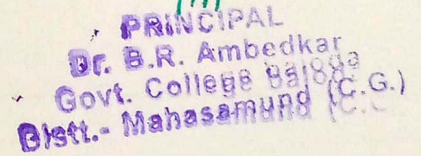 PRINCIPAL
Dr. B.R. Ambedkar
Govt. College
Distt.- Mahasamund (C.G.)